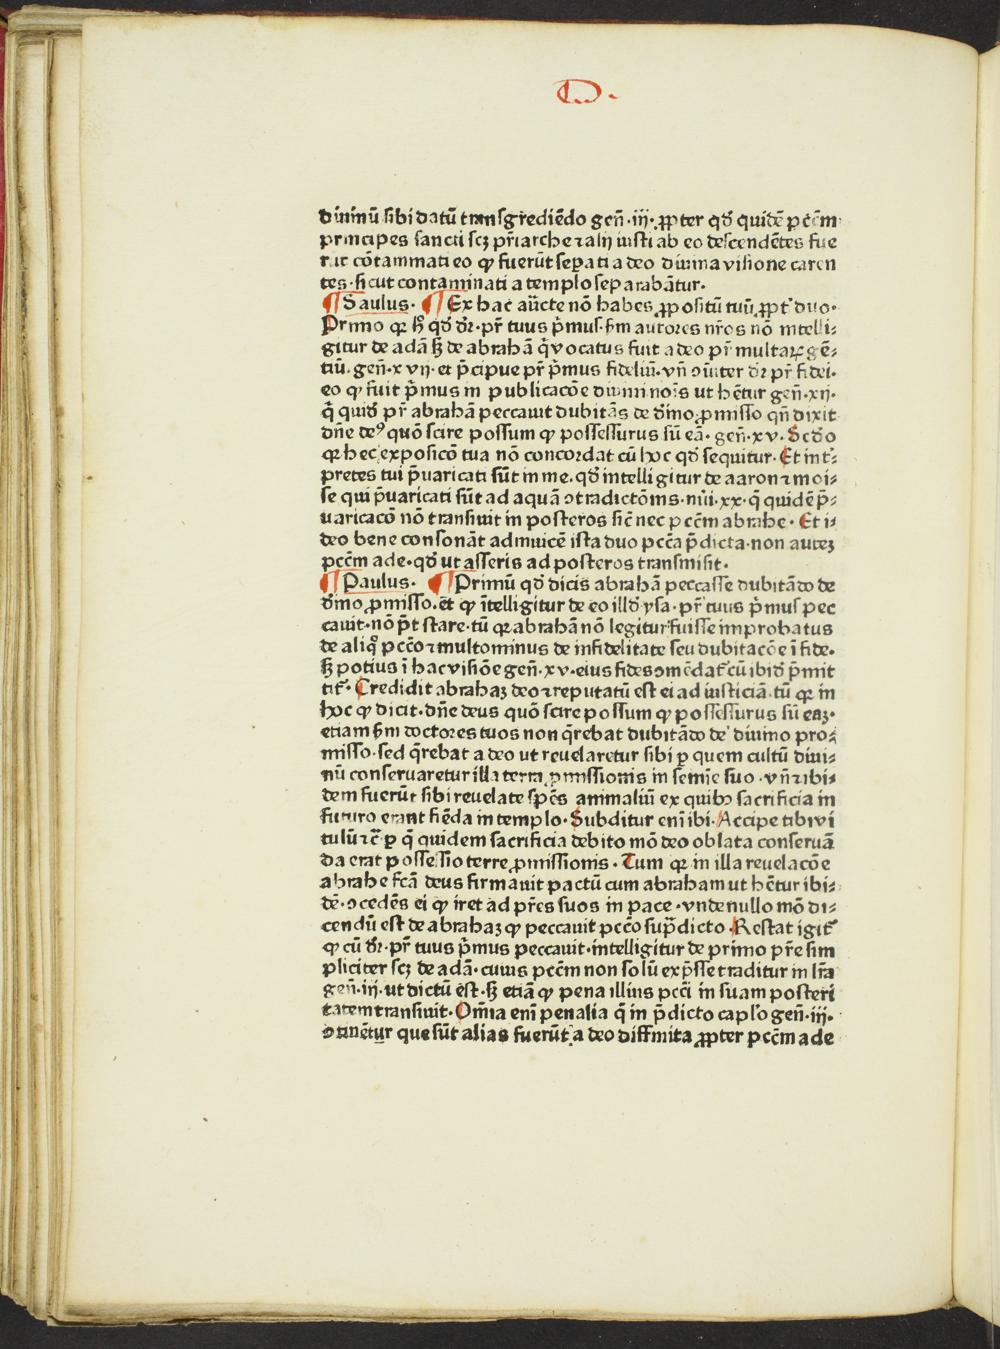 D.
diuinū sibi datū transgrediēdo geñ·iij·ꝓpter qď quidē pc̄m
principes sancti scꝫ pr̄iarche ⁊ alij iusti ab eo descendētes fue
rūt cōtaminati eo ꝙ fuerūt seꝑati a deo diuina visione caren
tes·sicut contaminati a templo separabātur·
¶Saulus· ¶Ex hac aūcte nō habes ꝓpositū tuū ꝓpt̄ duo·
Primo qꝛ hͦ qď dꝛ̄·pr̄ tuus p̄mus·ẜm autores nr̄os nō intelli⸗
gitur de adā ꝫ de abrahā q̄ vocatus fuit a deo pr̄ multaꝝ gē⸗
tiū·geñ·xvij·et p̄cipue pr̄ p̄mus fideliū·vn̄ ↄ̄iter dꝛ̄ pr̄ fidei·
eo ꝙ fuit p̄mus in publicacōe diuini nōis ut hētur geñ·xij·
q̄ quiď pr̄ abrahā peccauit dubitās de ď̄ino ꝓmisso qn̄ dixit
dn̄e deꝰ quō scire possum ꝙ possessurus sū eā·geñ·xv·Scďo
qꝛ hec exposicō tua nō concordat cū hoc qď sequitur·Et int̄⸗
pretes tui p̄uaricati sūt in me·qď intelligitur de aaron ⁊ moi⸗
se qui p̄uaricati sūt ad aquā ↄtradictōnis·nūi·xx·q̄ quidē p̄⸗
uaricacō nō transiuit in posteros sic̄ nec pc̄cm abrahe·Et i⸗
deo bene consonāt adinuicē ista duo pccā p̄dicta·non auteꝫ
pcc̄m ade·qď ut asseris ad posteros transmisit·
¶Paulus· ¶Primū qď dicis abrahā peccasse dubitādo de
ď̄ino ꝓmisso·et ꝙ ītelligitur de eo illď ysa·pr̄ tuus p̄mus pec
cauit·nō p̄t stare·tū qꝛ abrahā nō legitur fuisse improbatus
de aliqͦ pccō ⁊ multominus de infidelitate seu dubitacōe ī fide·
ꝫ potius ī hac visiōe geñ·xv·eius fides ↄmēdat̄ cū ibiď p̄mit
tit̄·Credidit abrahaꝫ deo ⁊ reputatū est ei ad iusticiā·tū qꝛ in
hoc ꝙ dicit·dn̄e deus quō scire possum ꝙ possessurus sū eaꝫ·
etiam ẜm doctores tuos non q̄rebat dubitādo de diuino pro⸗
misso·sed q̄rebat a deo ut reuelaretur sibi ꝑ quem cultū diui⸗
nū conseruaretur illa terra ꝓmissionis in semīe suo·vn̄ ⁊ ibi⸗
dem fuerūt sibi reuelate spēs animaliū ex quibꝫ sacrificia in
futuro erant fiēda in templo·Subditur enī ibi·Accipe tibi vi
tulū ⁊c̄ ꝑ q̄ quidem sacrificia debito mō deo oblata conseruā
da erat possessio terre ꝓmissionis·Tum qꝛ in illa reuelacōe
abrahe fcā deus firmauit pactū cum abraham ut hētur ibi⸗
dē·ↄcedēs ei ꝙ iret ad pr̄es suos in pace·vnde nullo mō di⸗
cendū est de abrahaꝫ ꝙ peccauit pccō sup̄dicto·Restat igit̄
ꝙ cū dꝛ̄·pr̄ tuus p̄mus peccauit·intelligitur de primo pr̄e sim
pliciter scꝫ de adā·cuius pcc̄m non solū exp̄sse traditur in lr̄a
geñ·iij·ut dictū est·ꝫ etiā ꝙ pena illius pccī in suam posteri
tatem transiuit·Om̄ia enī penalia q̄ in p̄dicto caplō geñ·iij·
ↄtinētur que sūt alias fuerūt a deo diffinita ꝓpter pcc̄m ade